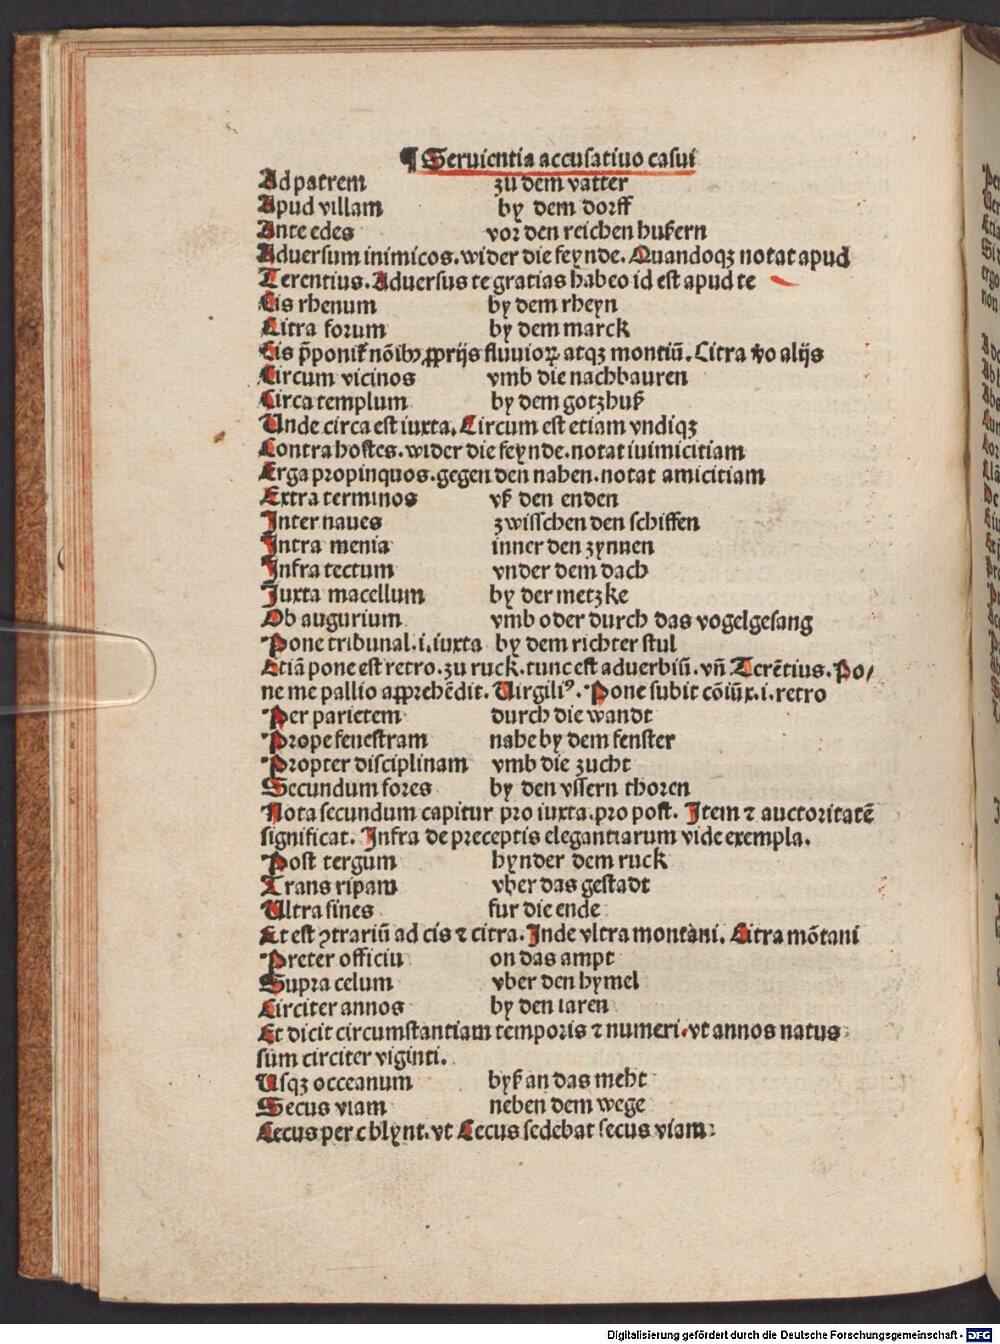 ¶ Seruientia accusatiuo casui
Ad patrem zu dem vatter
Apud villam by dem dorff
Ante edes vor den reichen hußern
Aduersum inimicos. wider die feynde. Quandoqꝫ notat apud
Terentius. Aduersus te gratias habeo id est apud te
Cis rhenum by dem rheyn
Citra forum by dem marck
Cis p̄ponit̄ nōibꝰ ꝓprijs fluuioꝝ atqꝫ montiū. Citra v̄o alijs
Circum vicinos vmb die nachbauren
Circa templum by dem gotzhuß
Unde circa est iuxta. Circum est etiam vndiqꝫ
Contra hostes. wider die feynde. notat iuimicitiam
Erga propinquos. gegen den nahen. notat amicitiam
Extra terminos vß den enden
Inter naues zwisschen den schiffen
Intra menia inner den zynnen
Infra tectum vnder dem dach
Iuxta macellum by der metzke
Ob augurium vmb oder durch das vogelgesang
Pone tribunal. i. iuxta by dem richter stul
Etiā pone est retro. zu ruck. tunc est aduerbiū. vn̄ Terētius. Po/
ne me pallio apprehēdit. Uirgiliꝰ. Pone subit cōiūx. i. retro
Per parietem durch die wandt
Prope fenestram nahe by dem fenster
Propter disciplinam vmb die zucht
Secundum fores by den vssern thoren
Nota secundum capitur pro iuxta. pro post. Item ⁊ auctoritatē
significat. Infra de preceptis elegantiarum vide exempla.
Post tergum hynder dem ruck
Trans ripam vber das gestadt
Ultra fines fur die ende
Et est ꝯtrariū ad cis ⁊ citra. Inde vltra montani. Citra mōtani
Preter officiu on das ampt
Supra celum vber den hymel
Circiter annos by den iaren
Et dicit circumstantiam temporis ⁊ numeri. vt annos natus
sum circiter viginti.
Usqꝫ occeanum byß an das meht
Secus viam neben dem wege
Cecus per c blynt. vt Cecus sedebat secus viam:
Digitalisierung gefördert durch die Deutsche Forschungsgemeinschaft - DFG